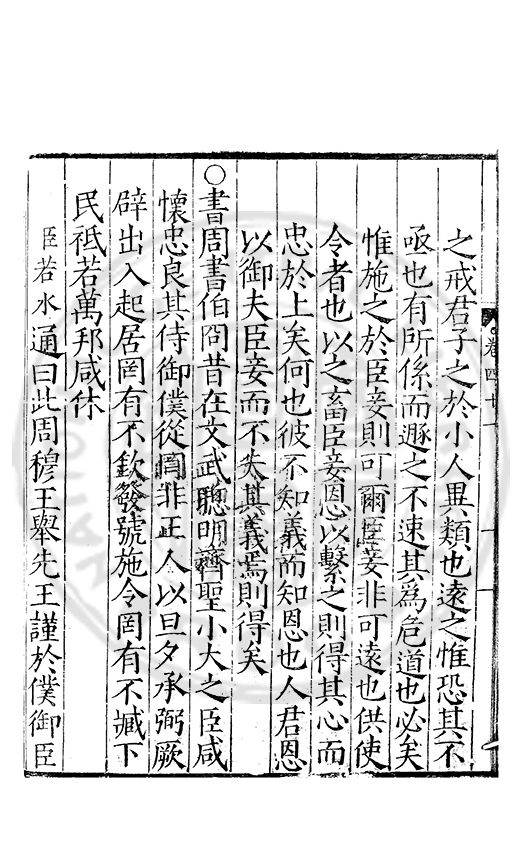 卷四十
之戒君子之於小人異類也遠之惟恐其不
亟也有所係而遯之不速其爲危道也必矣
惟施之於臣妾則可爾臣妾非可遠也供使
令者也以之畜臣妾恩以繫之則得其心而
忠於上矣何也彼不知義而知恩也人君恩
以御夫臣妾而不失其義焉則得矣
○書周書伯冏昔在文武聰明齊聖小大之臣咸
懷忠良其侍御僕從罔非正人以旦夕承弼厥
辟出入起居罔有不欽發號施令罔有不臧下
民祗若萬邦咸休
臣若水通曰此周穆王舉先王謹於僕御臣